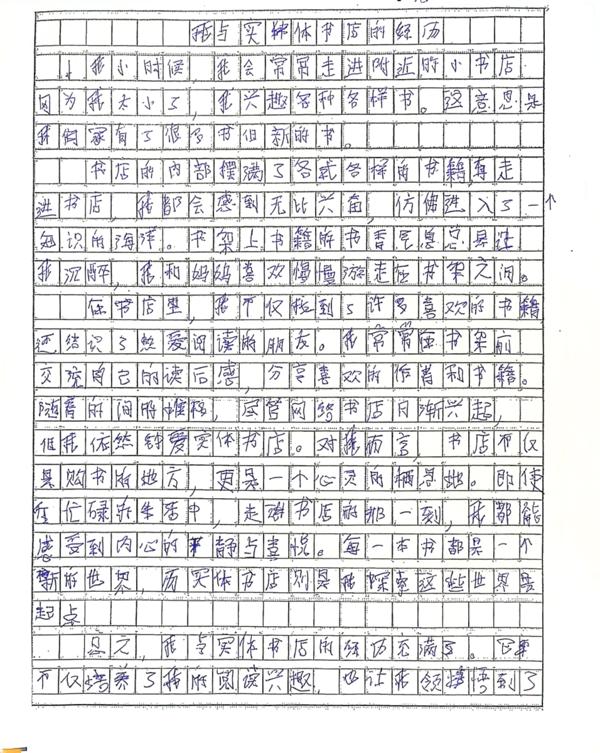 我与实体书店的经历
我小时候，我会常常走进附近的小书店
因为我太小了，我兴趣各种各样书。这意思是
我们家有了很多书但新的书。
书店的内部摆满了各式各样的书籍，每走
进书店，我都会感到无比兴奋，仿佛进入了一个
知识的海洋。书架上书籍的书香气息总是让
我沉醉，我和妈妈喜欢慢慢游走在书架之间。
在书店里，我不仅找到了许多喜欢的书籍
还结识了热爱阅读的朋友。我常常在书架前
交流自己的读后感，分享喜欢的作者和书籍。
随着时间的推移，尽管网络书店日渐兴起，
但我依然钟爱实体书店。对我而言，书店不仅
是购书的地方，更是一个心灵的栖息地。即使
在忙碌的生活中，走进书店的那一刻，我都能
感受到内心的平静与喜悦。每一本书都是一个
新的世界，而实体书店则是我探索这些世界的
起点
总之，我与实体书店的经历充满了。它
不仅培养了我的阅读兴趣，也让我领悟到了